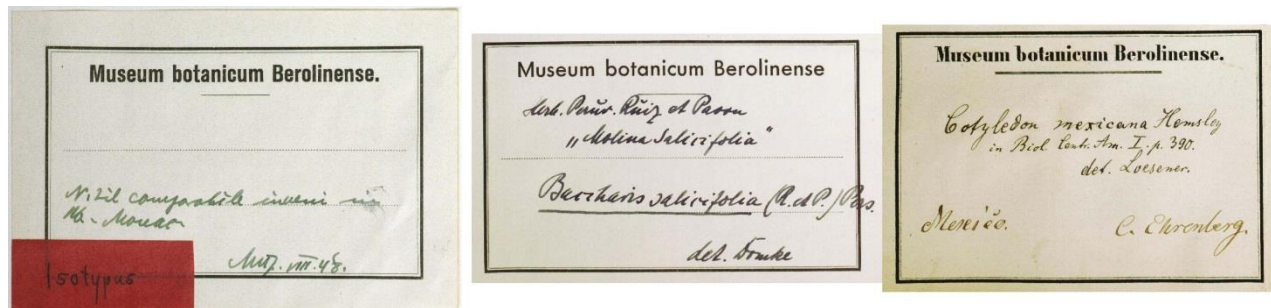 Museum botanicum Berolinense.
Nihil comparabile inveni in
Hb. Monac
VIII.48.
Isotypus
Museum botanicum Berolinense
Herb. Peruv. Ruiz et Pavon
"Molina Salicifolia"
Baccharis salicifolia (R. et P.) Pers.
det. Domke
Museum botanicum Berolinense.
Cotyledon mexicana Hemsley
in Biol. Centr. Am. I. p. 390.
det. Loesener.
Mexico.
C. Ehrenberg.